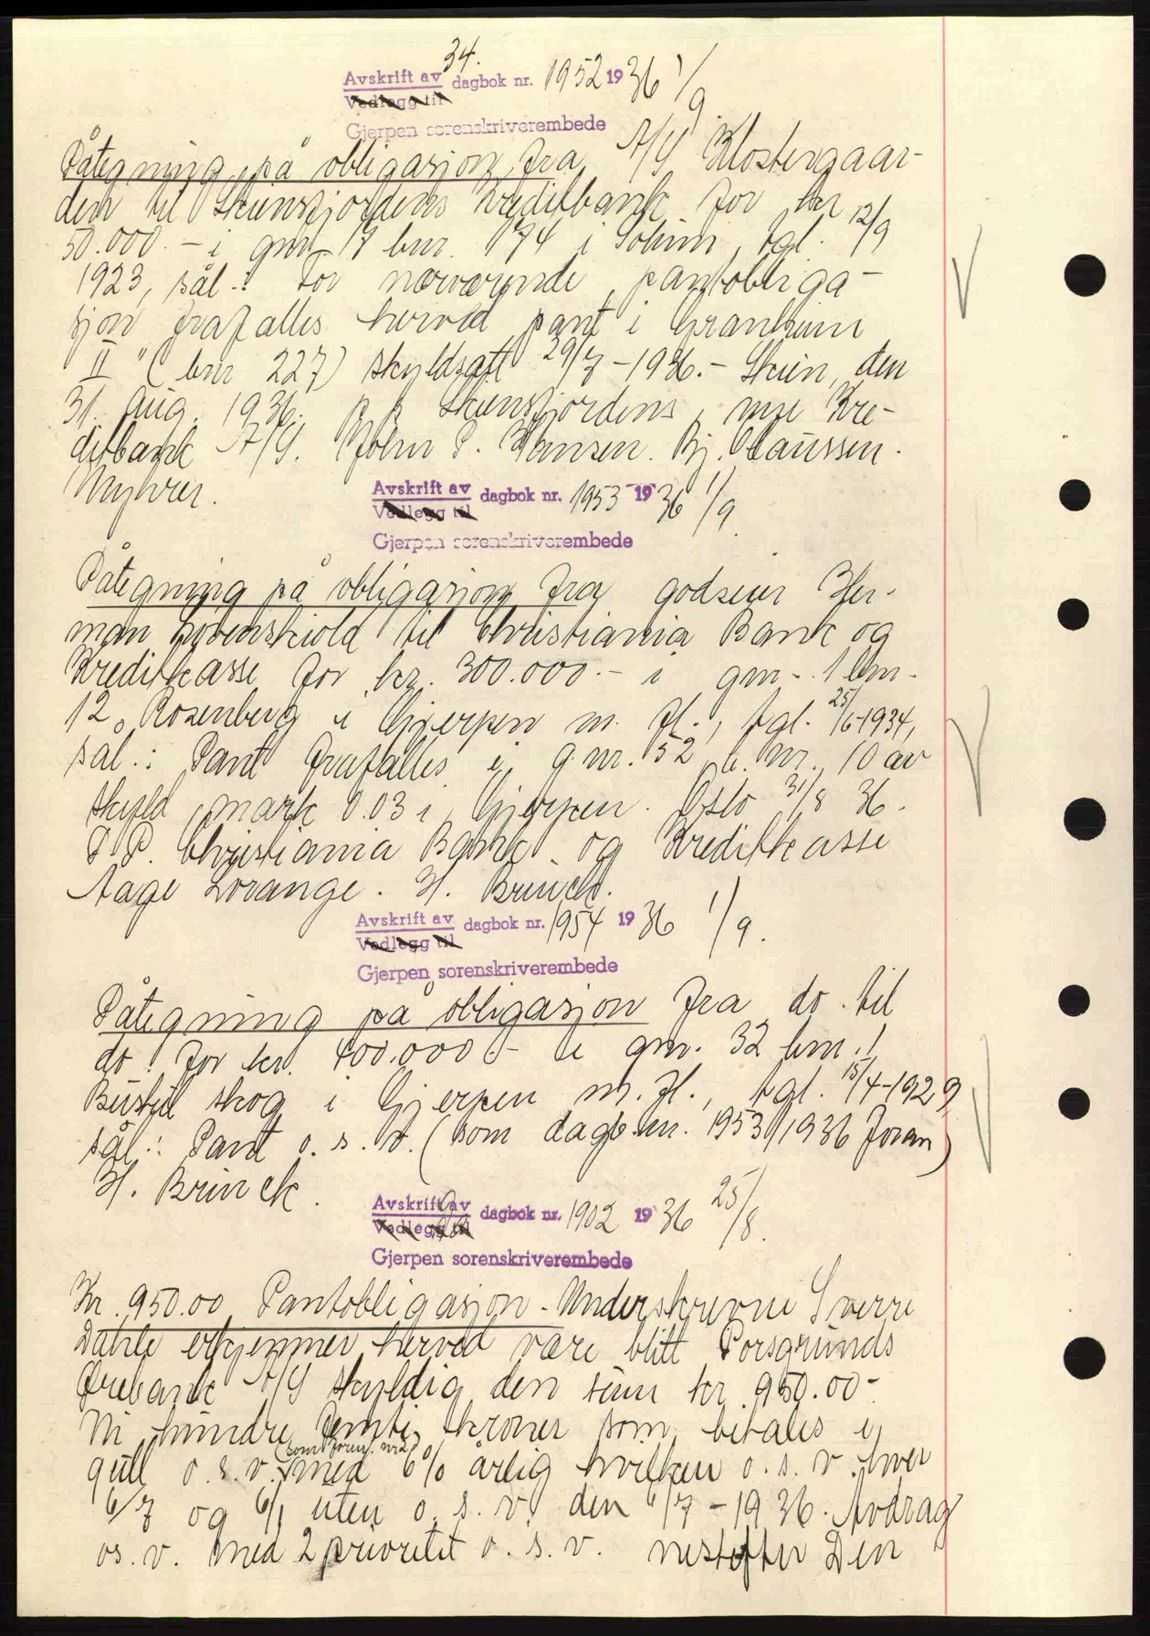 34.
Avskrift av dagbok nr. 1952 1936 1/9
Vedlegg til
Gjerpen sorenskriverembede
Påtegning på obligasjon fra A/S Klostergaar-
den til Skiensfjordens Kreditbank for kr
50.000.- i gnr 17 bnr. 174 i Solum, tgl. 12/9
1923, sål.: For nærværende pantobliga-
sjon frafalles herved pant i Granheim
II" (bnr 227) skyldsatt 29/7-1936.- Skien, den
31. Aug. 1936. p.p. Skiensfjordens nye Kre-
ditbank A/S. John P. Hansen. Bj. Claussen.
Myhrer.
Avskrift av dagbok nr. 1953 1936 1/9
Vedlegg til
Gjerpen sorenskriverembede
Påtegning på obligasjon fra godseier Her-
man Løvenskiold til Christiania Bank og
Kreditkasse for kr. 300.000.- i gnr. 1 bnr.
12 Rosenberg i Gjerpen m. fl., tgl. 25/6-1934,
sål.: Pant frafalles i g.nr. 52 b.nr. 10 av
skyld mark 0.03 i Gjerpen. Oslo 31/8 36.
P.P. Christiania Bank og Kreditkasse
Aage Lorange. H. Brinck.
Avskrift av dagbok nr. 1954 1936 1/9.
Vedlegg til
Gjerpen sorenskriverembede
Påtegning på obligasjon fra do. til
do. for kr. 400.000.- i gnr. 32 bnr. 1
skog i Gjerpen m. fl., tgl. 15/4-1929
sål.: Pant o. s. v. (som dagb.nr. 1953/1936 foran)
H. Brinck.
Avskrift av dagbok nr. 1902 1936 25/8.
Vedlegg til
Gjerpen sorenskriverembede
Kr. 950.00 Pantobligasjon. Underskrevne Sverre
Dahle erkjenner herved være blitt Porsgrunds
A/S skyldig den sum kr. 950.00-
Ni hundre femti kroner som betales i
gull o. s. v. med 6% årlig hvilken o. s. v. hver
6/7 og 6/1 uten o. s. v. den 6/7-1936. Avdrag
os. v. med 2 prioritet o. s. v. nestefter Den